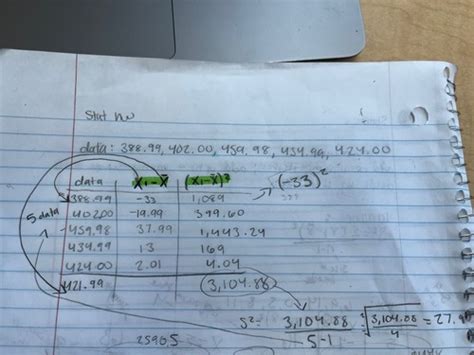 Stat hw
data: 388.99, 402.00, 459.98, 434.99, 424.00
data x₁-x̄ (x₁-x̄)² (-33)²
388.99 -33 1,089 ???
5 data
402.00 -19.99 399.60
459.98 37.99 1,443.24
434.99 13 169
424.00 2.01 4.04
421.99 3,104.88
s²= 3,104.88 / 5-1 √3,104.88 / 4 = 27.